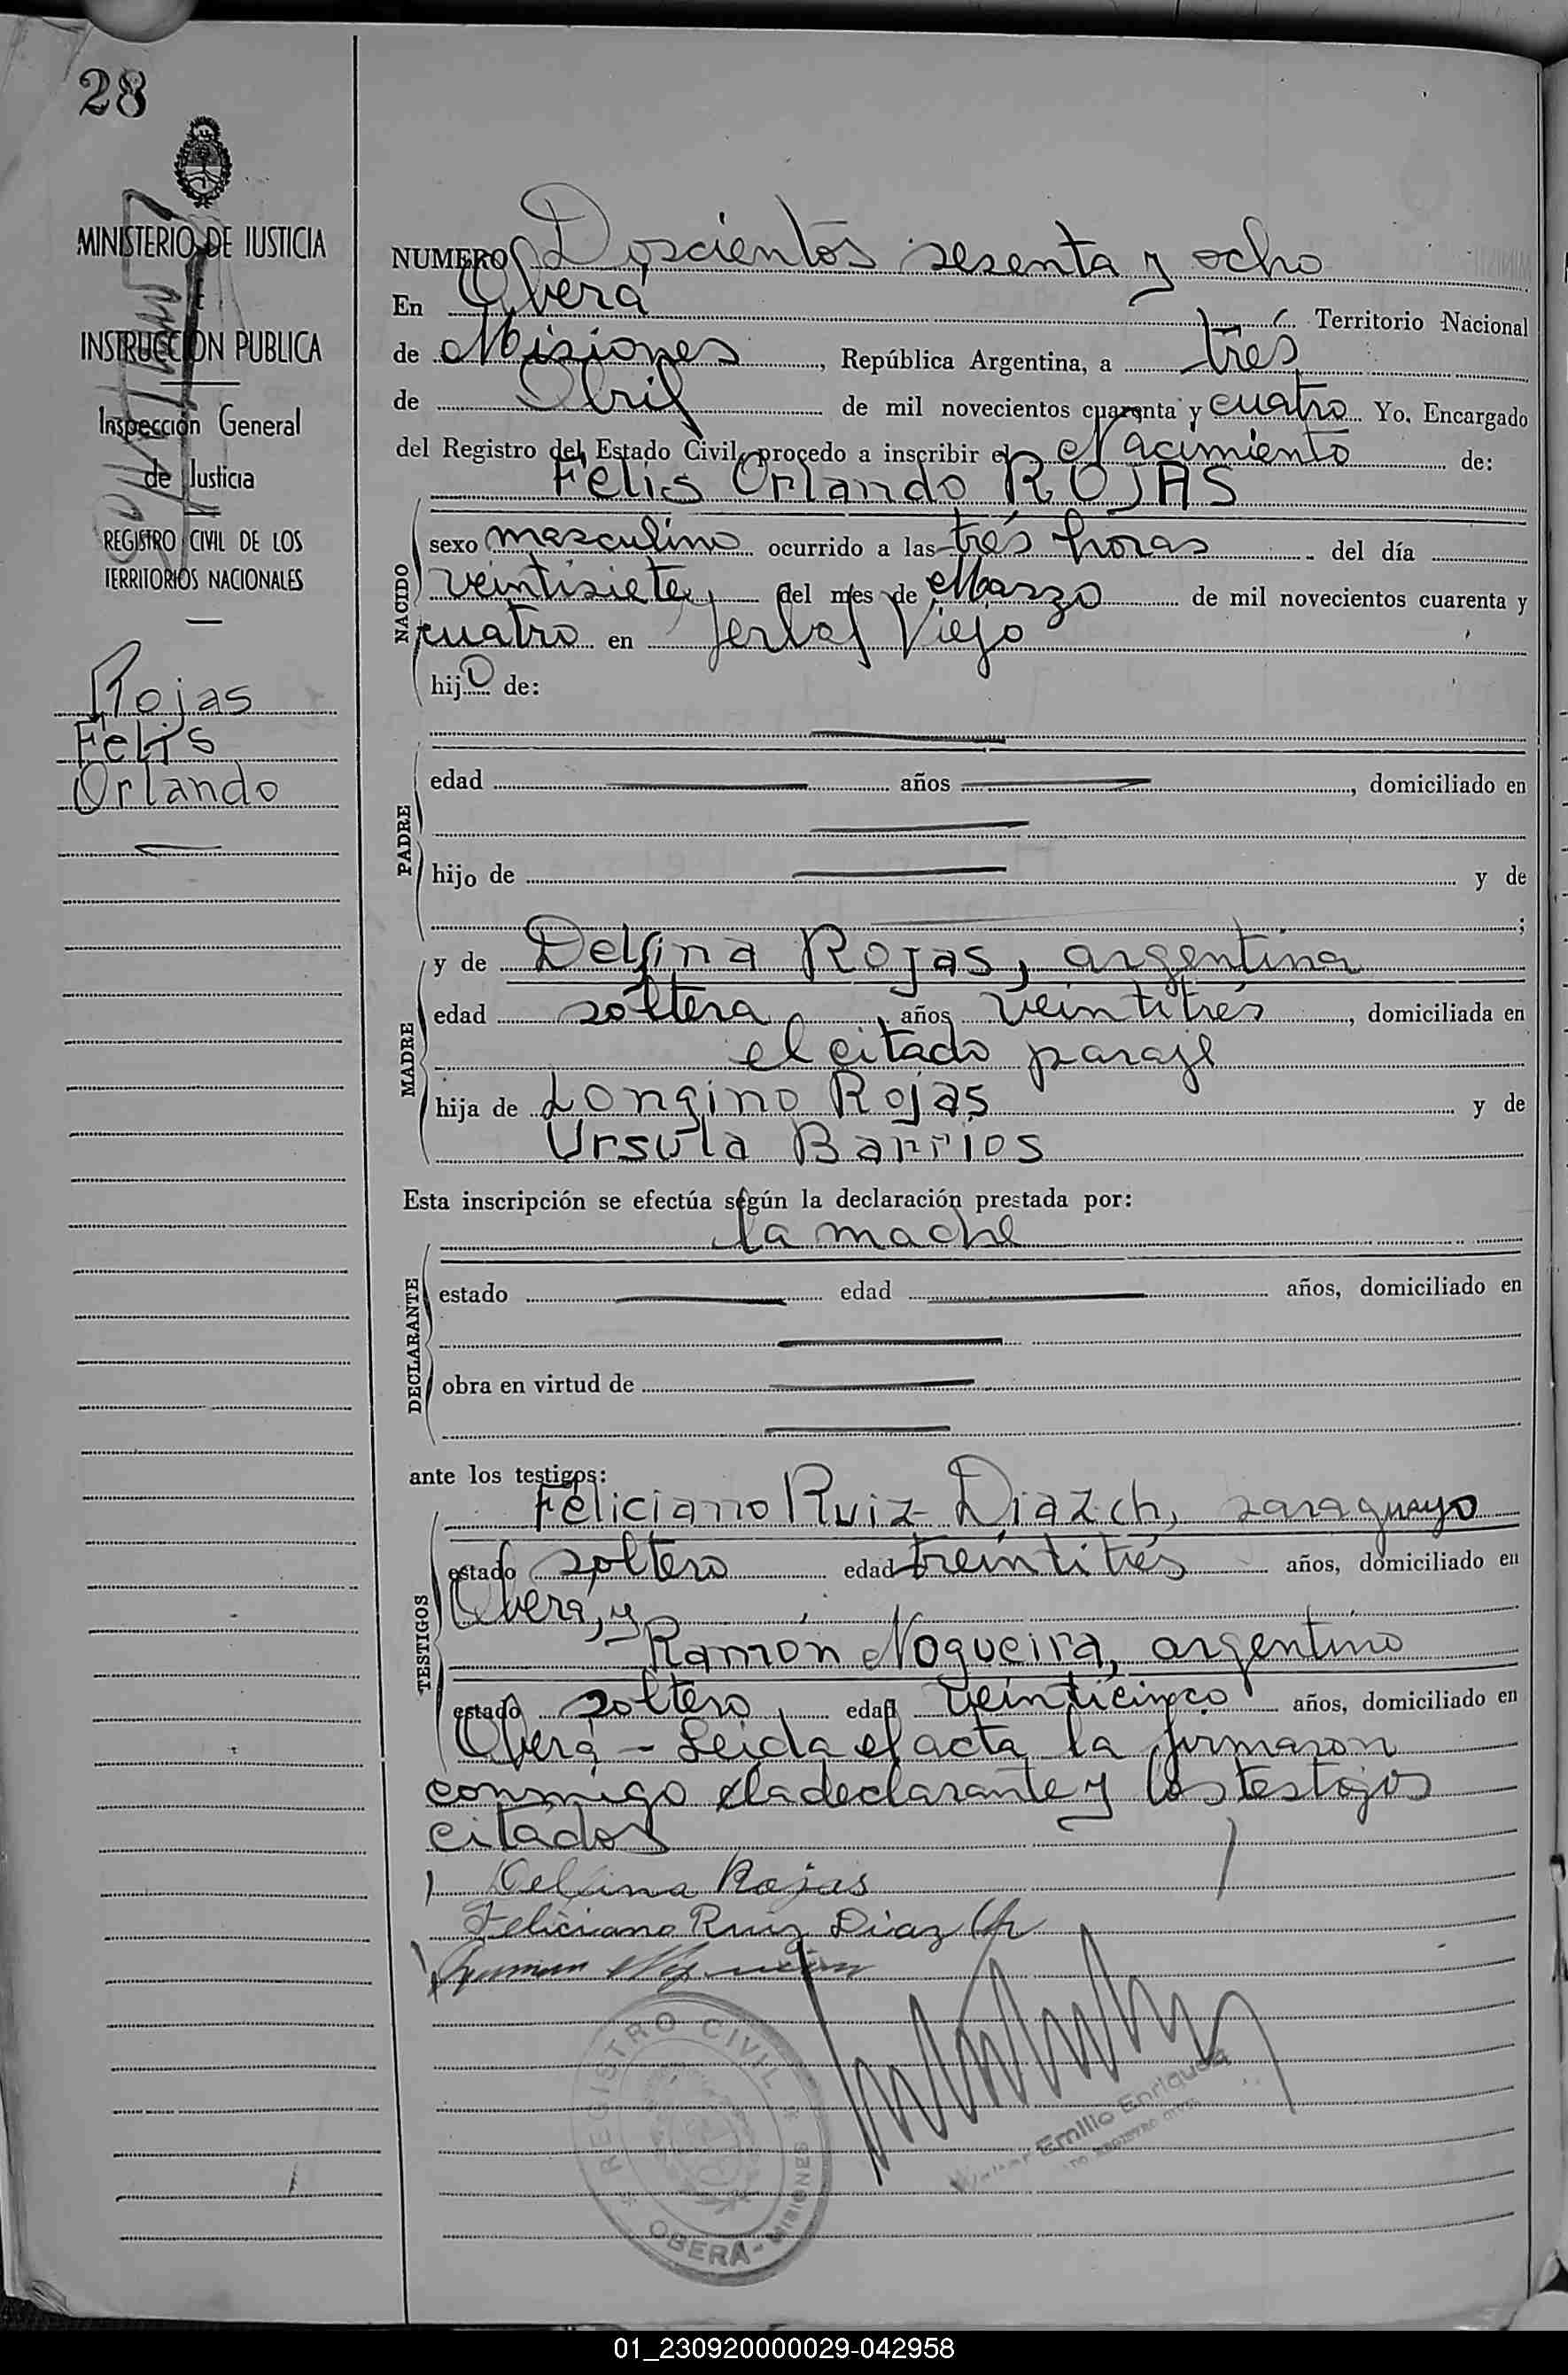 28
MINISTERIO DE JUSTICIA
E
INSTRUCCION PUBLICA
Inspección General
de Justicia
REGISTRO CIVIL DE LOS
TERRITORIOS NACIONALES
Rojas
Felis
Orlando
NUMERO Doscientos sesenta y ocho
En Oberá Territorio Nacional
de Misiones, República Argentina, a trés
de Abril de mil novecientos cuarenta y cuatro Yo, Encargado
del Registro del Estado Civil, procedo a inscribir el Nacimiento de:
Felis Orlando ROJAS
NACIDO
sexo masculino ocurrido a las trés horas del día
veintisiete, del mes de Marzo de mil novecientos cuarenta y
cuatro en Yerbal Viejo
hijo de:
PADRE
edad años , domiciliado en
hijo de y de
;
MADRE
y de Delfina Rojas, argentina
edad soltera, años veintitrés, domiciliada en
el citado paraje
hija de Longino Rojas y de
Ursula Barrios
Esta inscripción se efectúa según la declaración prestada por:
la madre
DECLARANTE
estado edad años, domiciliado en
obra en virtud de
ante los testigos:
TESTIGOS
Feliciano Ruiz Diaz ch, paraguayo
estado soltero edad treintitrés años, domiciliado en
Oberá, y
Ramón Nogueira, argentino
estado soltero, edad veinticinco años, domiciliado en
Oberá - Leida el acta la firmaron
conmigo la declarante y los testigos
citados
Delfina Rojas
Feliciano Ruiz Diaz Ch
REGISTRO CIVIL
OBERÁ - MISIONES
Emilio Enriquez
REGISTRO CIVIL
01_230920000029-042958